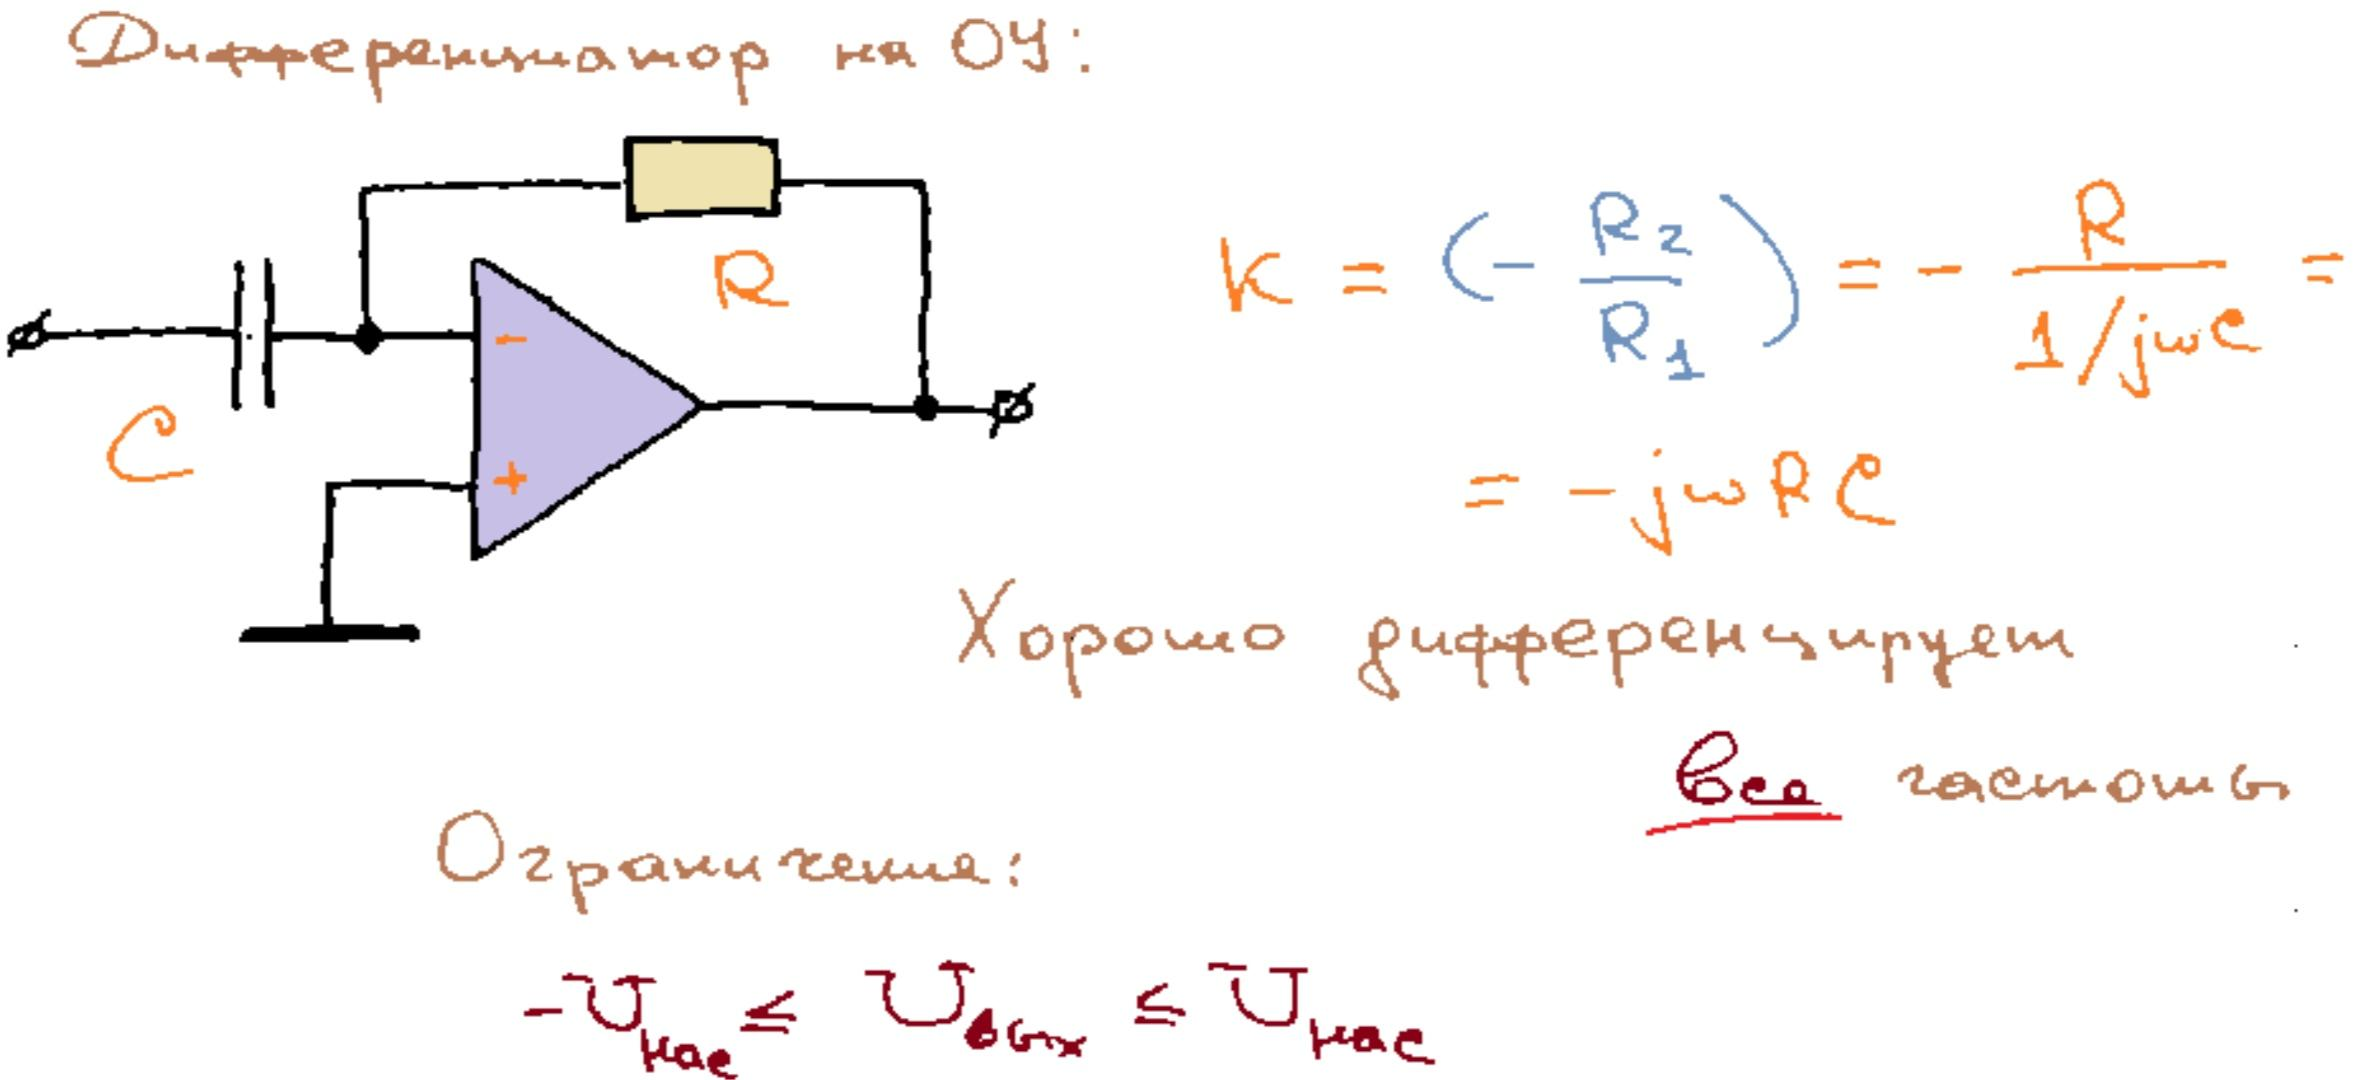 Дифференциатор на ОУ:
R
C
-
+
K = (- R2/R1) = - R/(1/jωC) =
= -jωRC
Хорошо дифференцирует
все частоты
Ограничение:
-Uнас ≤ Uвых ≤ Uнас